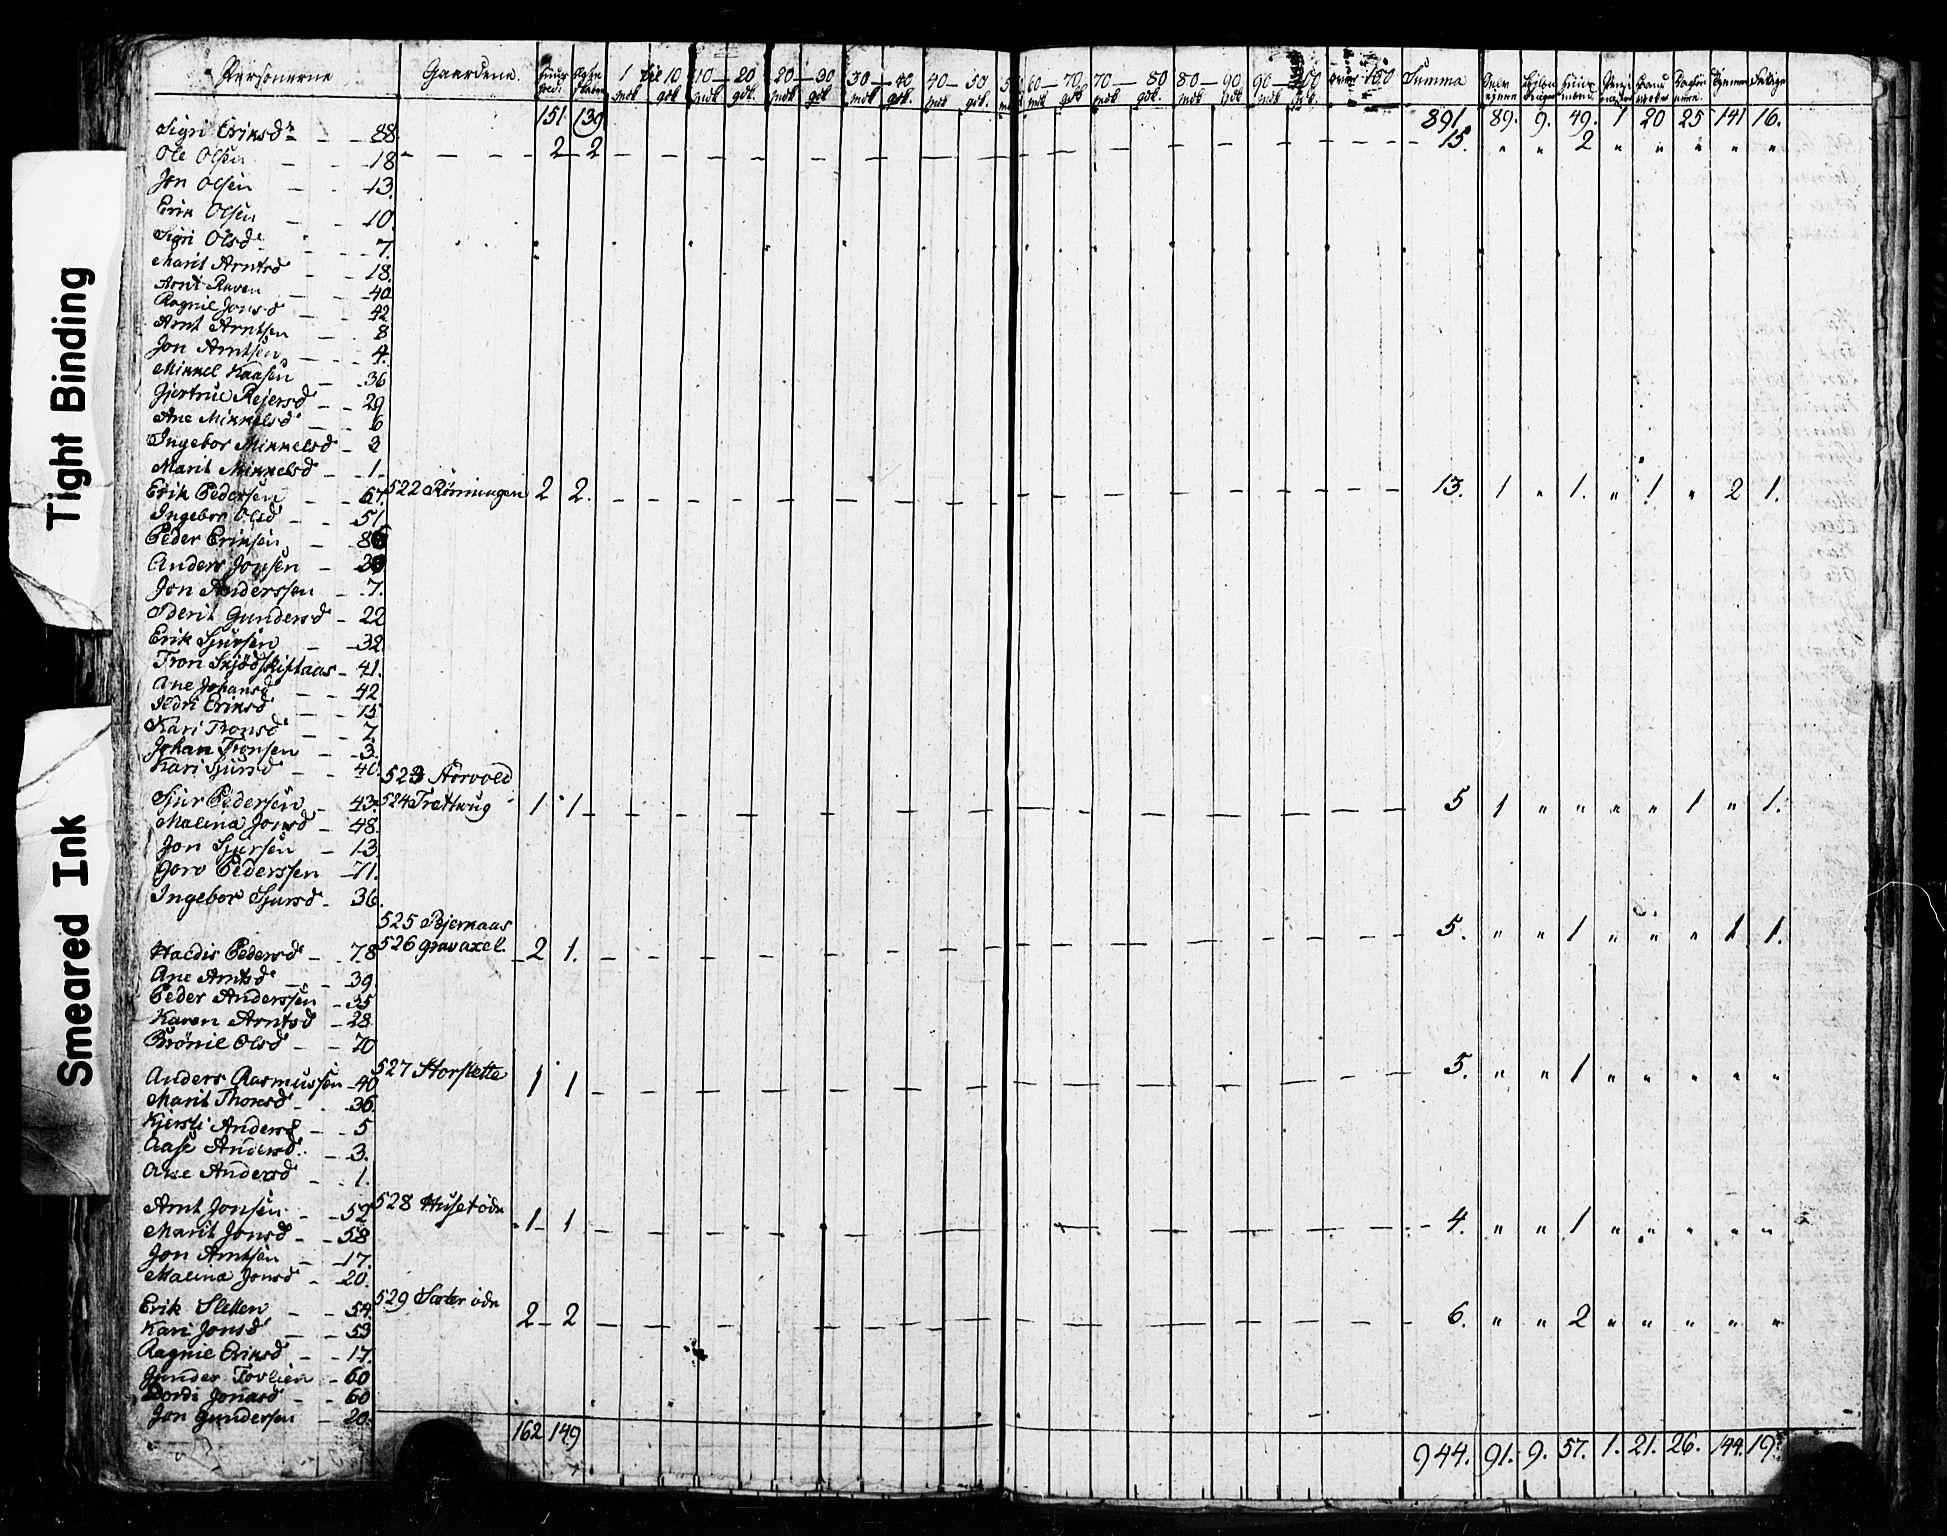 Tight Binding
Smeared Ink
Personerne Gaardene. 1 til 10 10 — 20 20 — 30 30 — 40 40 — 50 60 — 70 70 — 80 80 — 90 90 — 100 Summa
mdk gdk. mdk gdk. mdk gdk mdk gdk. mdk gdk. mdk gdk mdk gdk. mdk gdk mdk
151 139 891. 89. 9. 49. 1 20 25 141 16.
Sigri Eriksdr — 88
Ole Olsen — 18 — 2 — 2 — 15. „ „ 2 „ „ „ „ „
Jon Olsen — 13.
Erik Olsen — 10.
Sigri Olsd — 7.
Marit Arntsd — 18.
Arnt Raven — 40
Ragnil Jonsd — 42
Arnt Arntsen — 8
Jon Arntsen — 4.
Mikkel Kaasen — 36
Gjertrue Rejersd — 29
Ane Mikkelsd — 6
Ingebor Mikkelsd — 3
Marit Mikkelsd — 1.
Erik Pedersen — 67. 522 Rønningen 2 2. — 13. 1 „ 1. „ 1 „ 2 1.
Ingebor Olsd — 51
Peder Eriksen —
Anders Jonsen —
Jon Anderssen — 7.
Berit Gundersd — 22
Erik Sjursen — 32.
Tron Skjødskiftaas — 41.
Ane Johansd — 42
Ildri Eriksd — 15
Kari Tronsd — 7.
Johan Tronsen — 3.
Kari Sjursd — 40. 523 Storvold
Sjur Pedersen — 43. 524 Trettaug 1 1 — 5 1 „ „ „ „ 1 „ 1.
Malena Jonsd — 48.
Jon Sjursen — 13.
Goro Pederssen — 71.
Ingebor Sjursd — 36.
525 Bjernaas
Haldis Pedersd — 78 526 Gravaxel — 2 1. — 5. „ „ 1 „ „ „ 1 1.
Ane Arntsd — 39.
Peder Anderssen — 35
Karen Arntsd — 28
Brønil Olsd — 70
Anders Rasmussen — 40 527 Storslette 1 1 — 5. „ „ 1 „ „ „ „ „
Marit Thorsd — 36.
Kjersti Andersd — 5
Aase Andersd. — 3.
Ane Andersd — 1.
Arnt Jonsen — 52 528 Husetøde — 1 — 1 — 4. „ „ 1 „ „ „ „ „
Marit Jonsd — 58
Jon Arntsen — 17.
Malena Jonsd — 20.
Erik Sletten — 54. 529 Sæter øde 2 — 2 — 6. „ „ 2 „ „ „ „ „
Kari Jonsd — 53
Ragnil Eriksd — 17.
Gunder Tovlien — 60
Dordi Jonasd — 60
Jon Gundersen — 20.
162 149 944. 91. 9. 57. 1. 21. 26. 144. 19